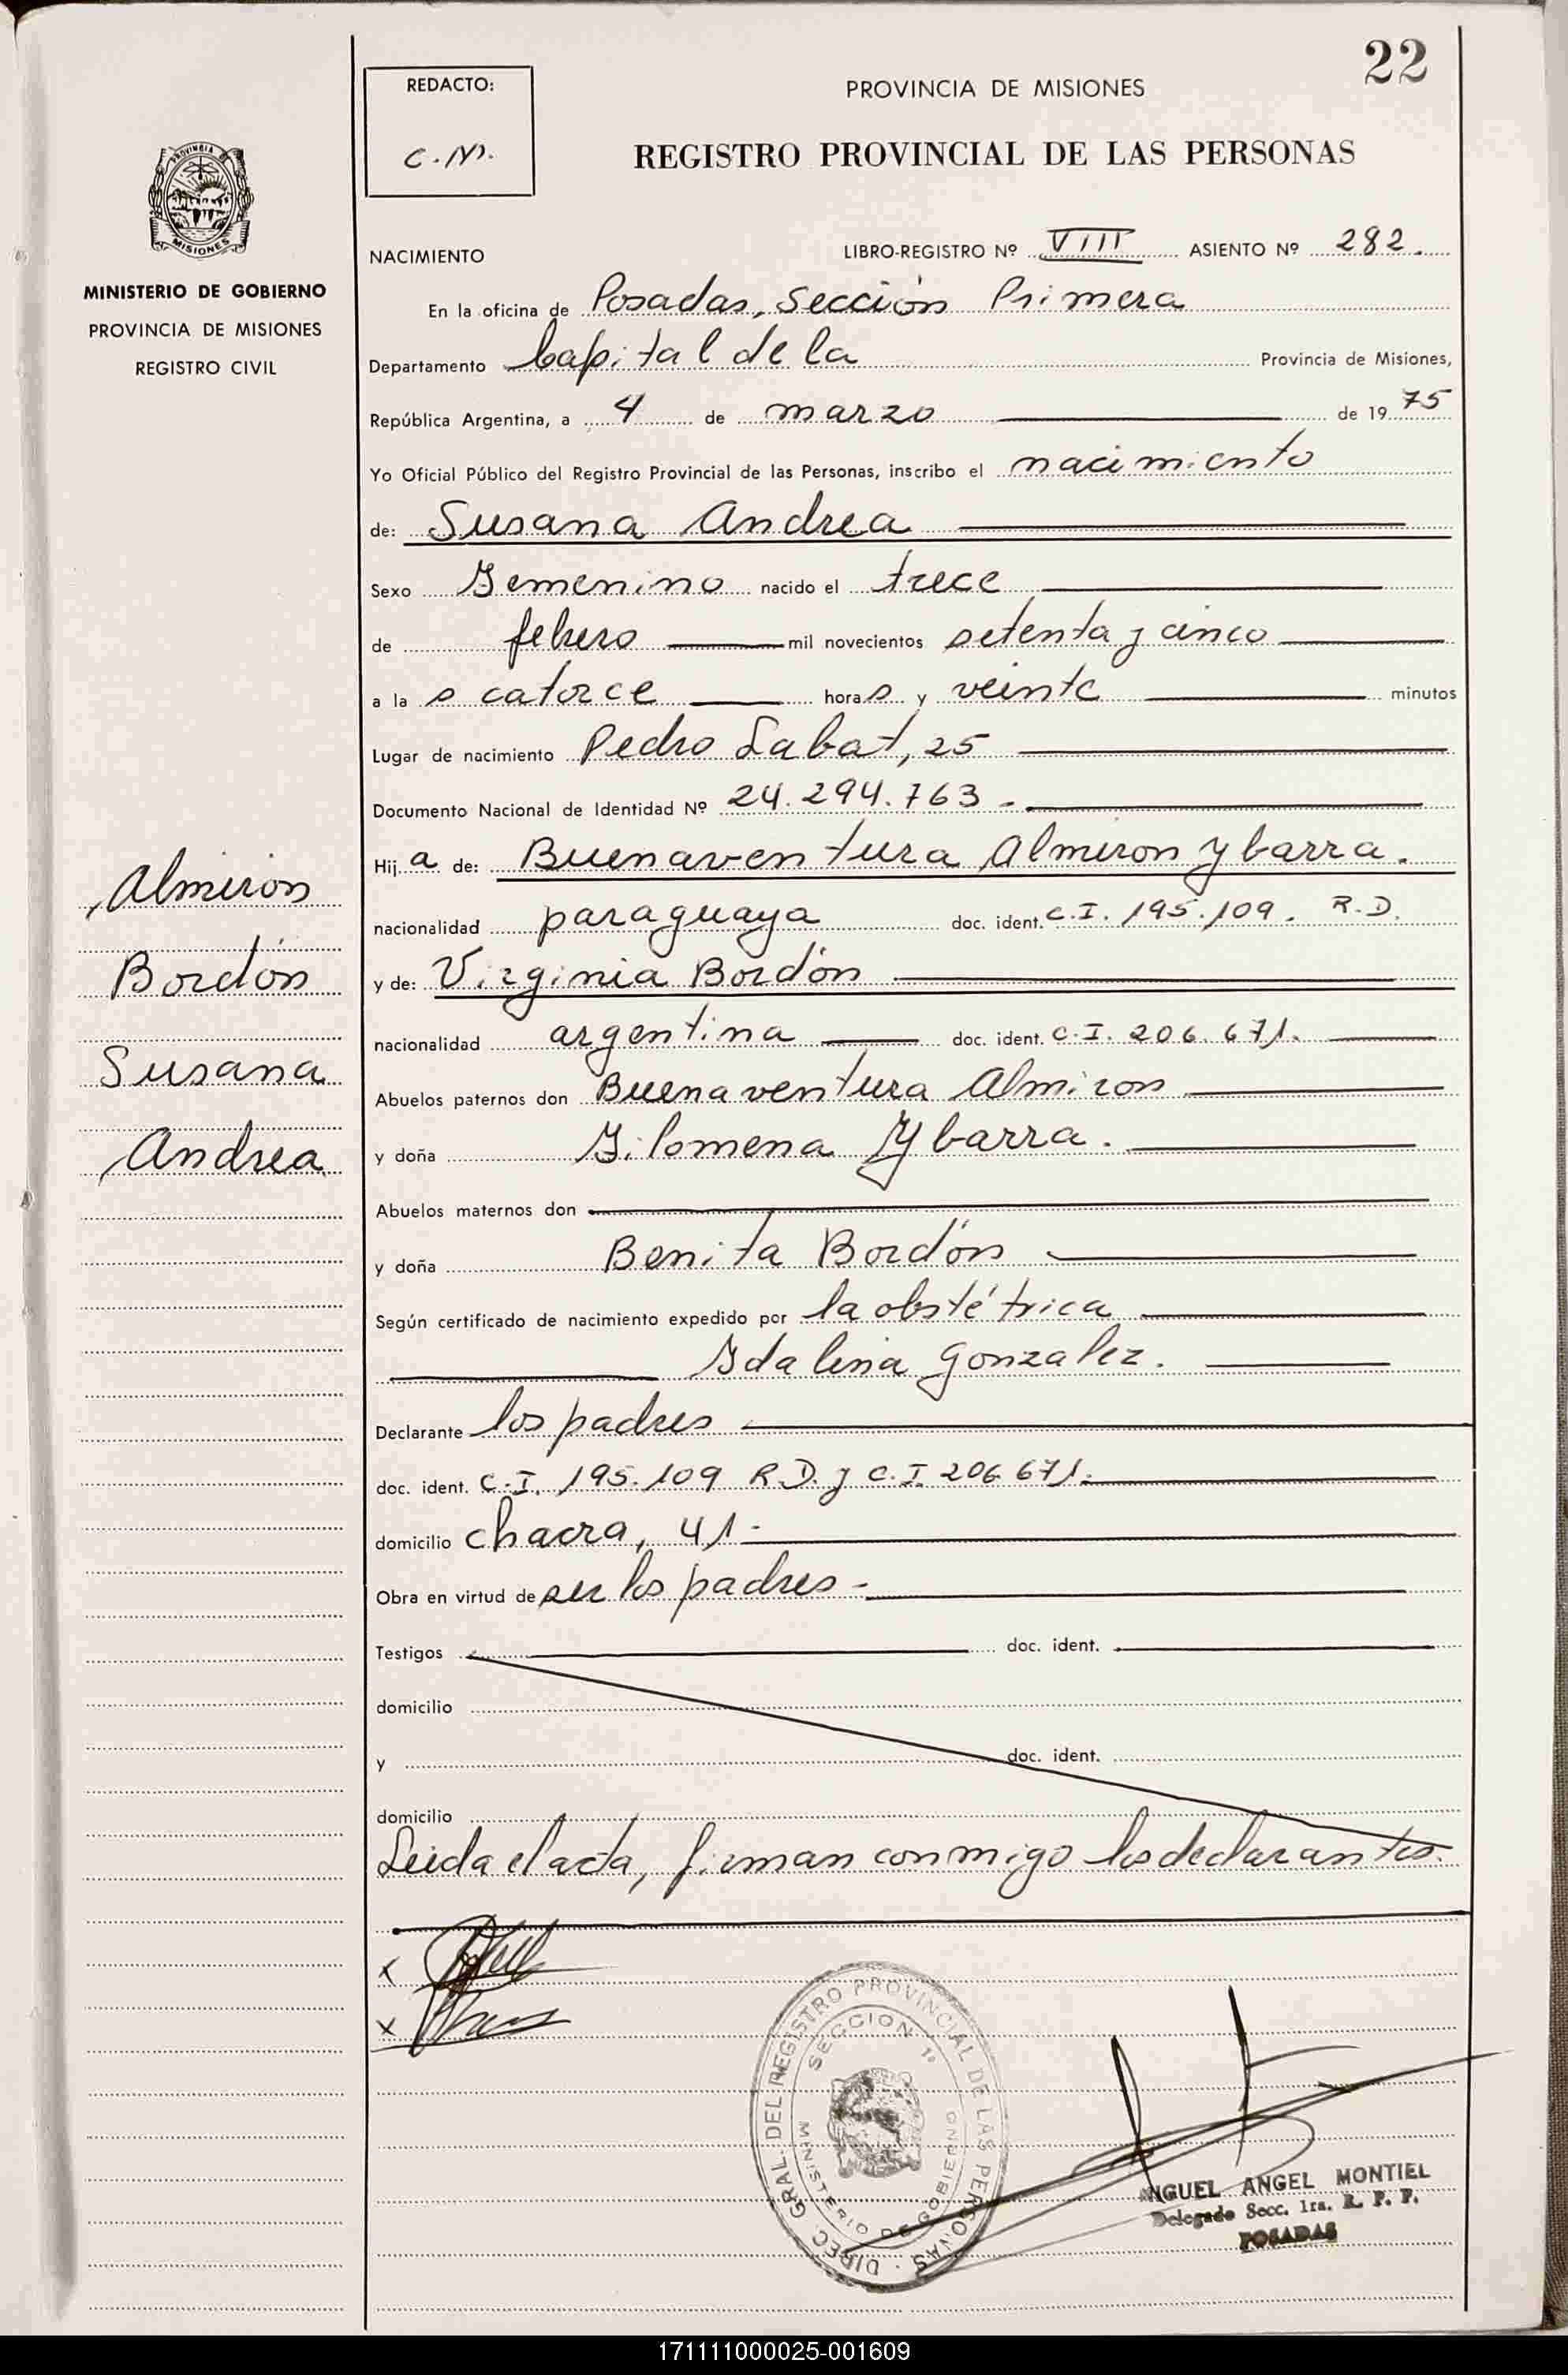 22
REDACTO:
C.M.
PROVINCIA DE MISIONES
REGISTRO PROVINCIAL DE LAS PERSONAS
PROVINCIA DE
MISIONES
MINISTERIO DE GOBIERNO
PROVINCIA DE MISIONES
REGISTRO CIVIL
NACIMIENTO LIBRO-REGISTRO Nº VIII ASIENTO Nº 282.
En la oficina de Posadas, Sección Primera
Departamento Capital de la Provincia de Misiones,
República Argentina, a 4 de marzo de 19 75
Yo Oficial Público del Registro Provincial de las Personas, inscribo el nacimiento
de: Susana Andrea
Sexo Femenino nacido el trece
de febrero mil novecientos setenta y cinco
a la s catorce hora s y veinte minutos
Lugar de nacimiento Pedro Labat, 25
Documento Nacional de Identidad Nº 24.294.763 -
Hij a de: Buenaventura Almiron Ybarra.
nacionalidad paraguaya doc. ident. C.I. 195.109. R.D.
y de: Virginia Bordón
nacionalidad argentina doc. ident. C.I. 206.671.
Abuelos paternos don Buenaventura Almiron
y doña Filomena Ybarra.
Abuelos maternos don
y doña Benita Bordón
Según certificado de nacimiento expedido por la obstétrica
Idalina Gonzalez.
Declarante los padres
doc. ident. C.I. 195.109 R.D. y C.I. 206.671.
domicilio chacra, 41.-
Obra en virtud de ser los padres-
Testigos doc. ident.
domicilio
y doc. ident.
domicilio
Leida el acta, firman conmigo los declarantes.
Almiron
Bordón
Susana
Andrea
x
x
DIREC. GRAL. DEL REGISTRO PROVINCIAL DE LAS PERSONAS
SECCION 1º
MINISTERIO DE GOBIERNO
MIGUEL ANGEL MONTIEL
Delegado Secc. 1ra. R. P. P.
POSADAS
171111000025-001609